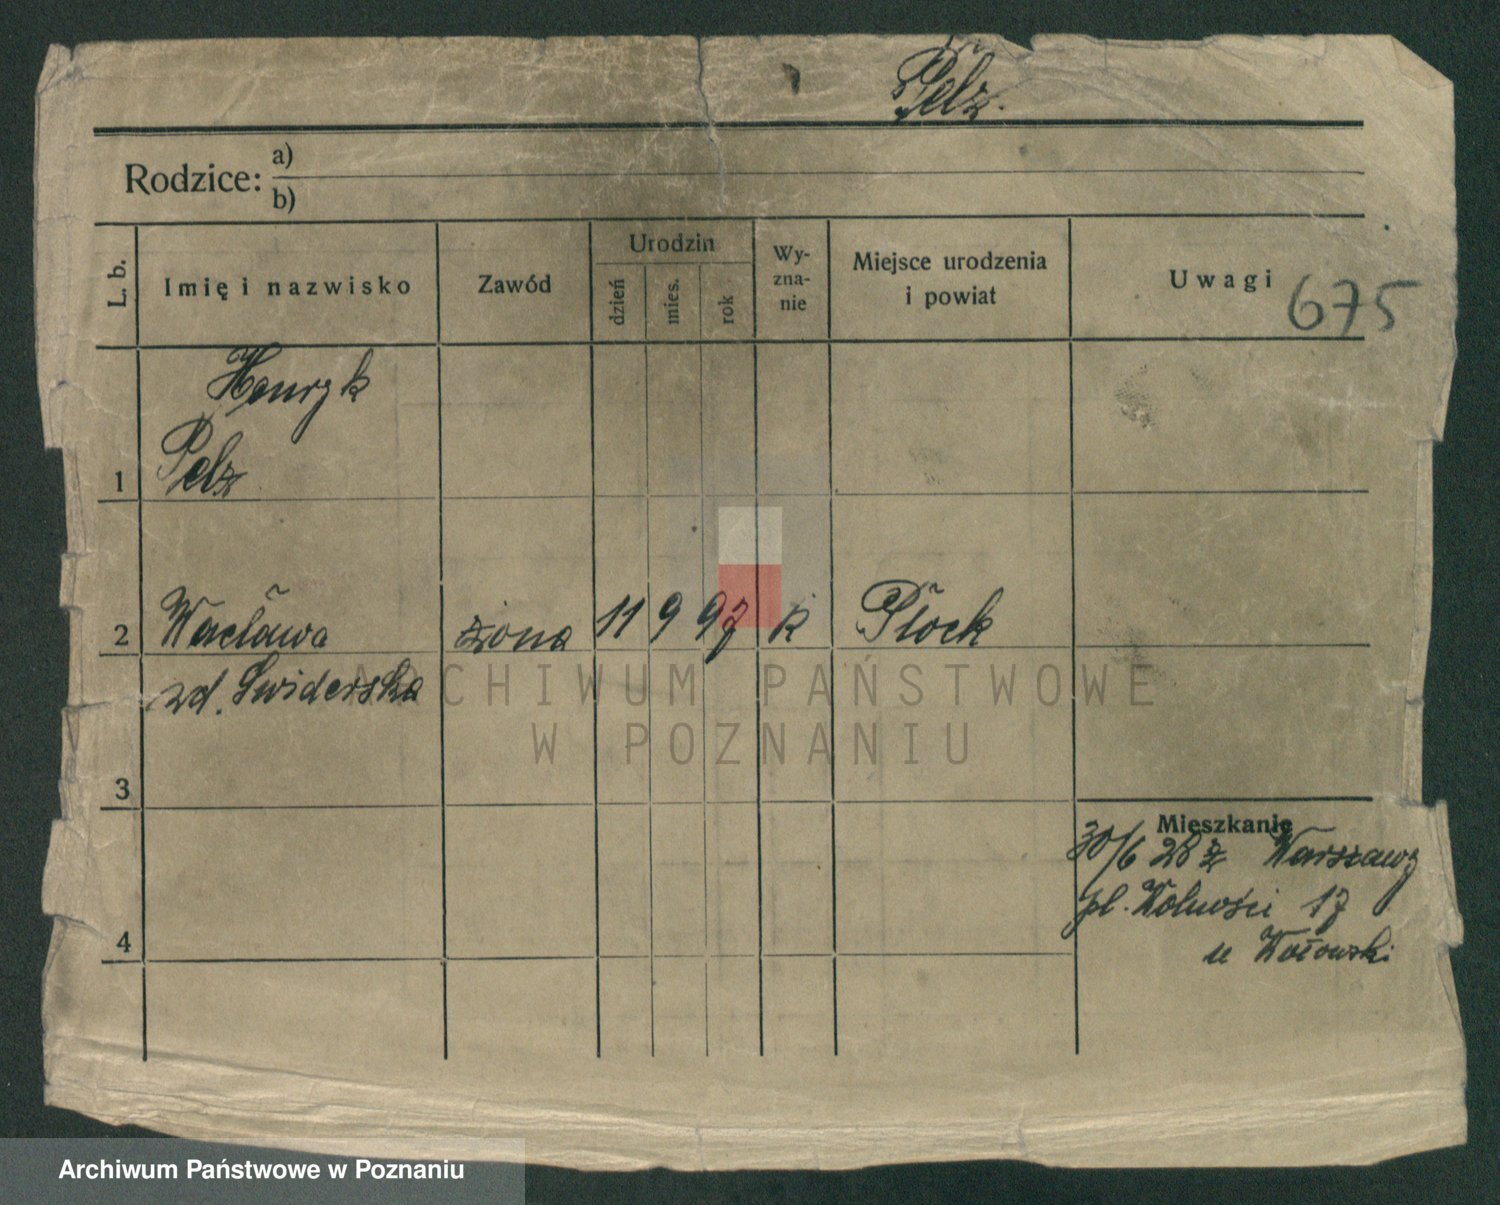 Pelz.
Rodzice: a)
b)
L. b.
Imię i nazwisko
Zawód
Urodzin
dzień
mies.
rok
Wy-
zna-
nie
Miejsce urodzenia
i powiat
Uwagi
675
Henryk
1 Pelz
2 Wacława żona 11 9 97 k Płock
zd. Świderska
3
4
Mieszkanie
30/6 28 z Warszawy
pl. Wolności 17
u Wołowski
ARCHIWUM PAŃSTWOWE
W POZNANIU
Archiwum Państwowe w Poznaniu